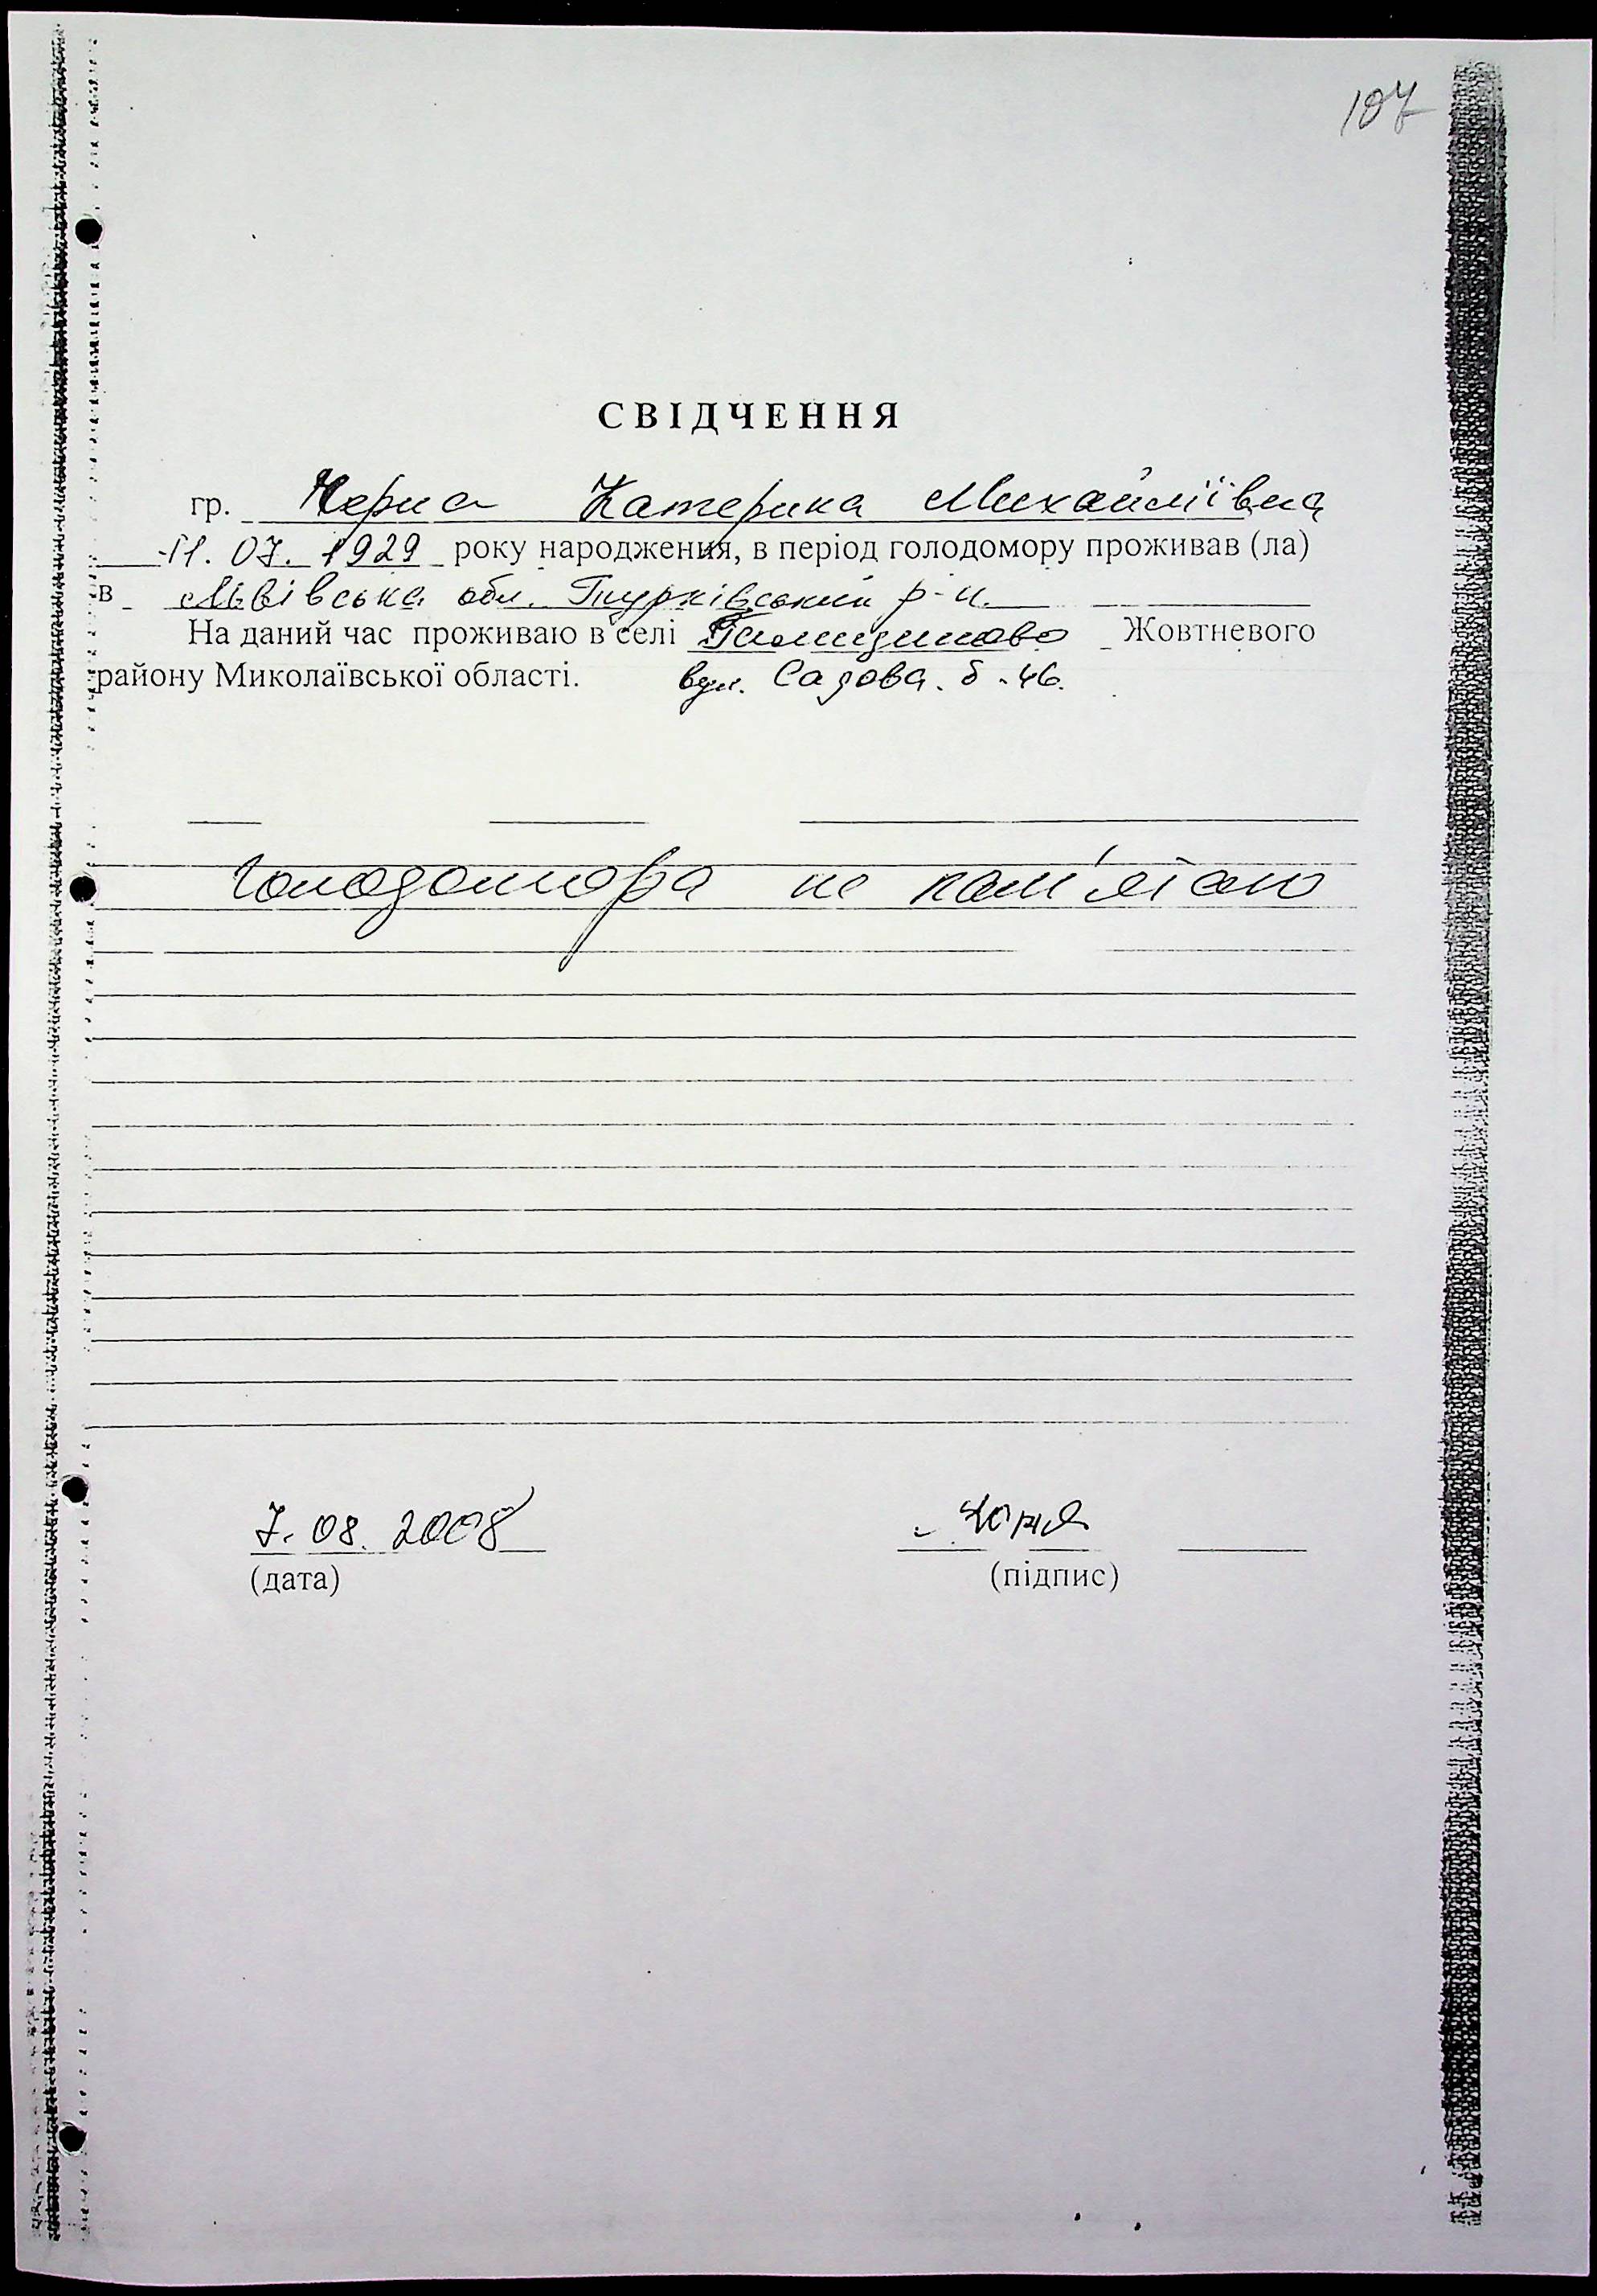 107
СВІДЧЕННЯ
гр. Черна Катерина Михайлівна
11.07.1929 року народження, в період голодомору проживав (ла)
в Львівська обл. Турківський р-н.
На даний час проживаю в селі Галициново Жовтневого
району Миколаївської області. вул. Садова. б-46.
Голодомора не пам'ятаю
7.08.2008
(дата) (підпис)